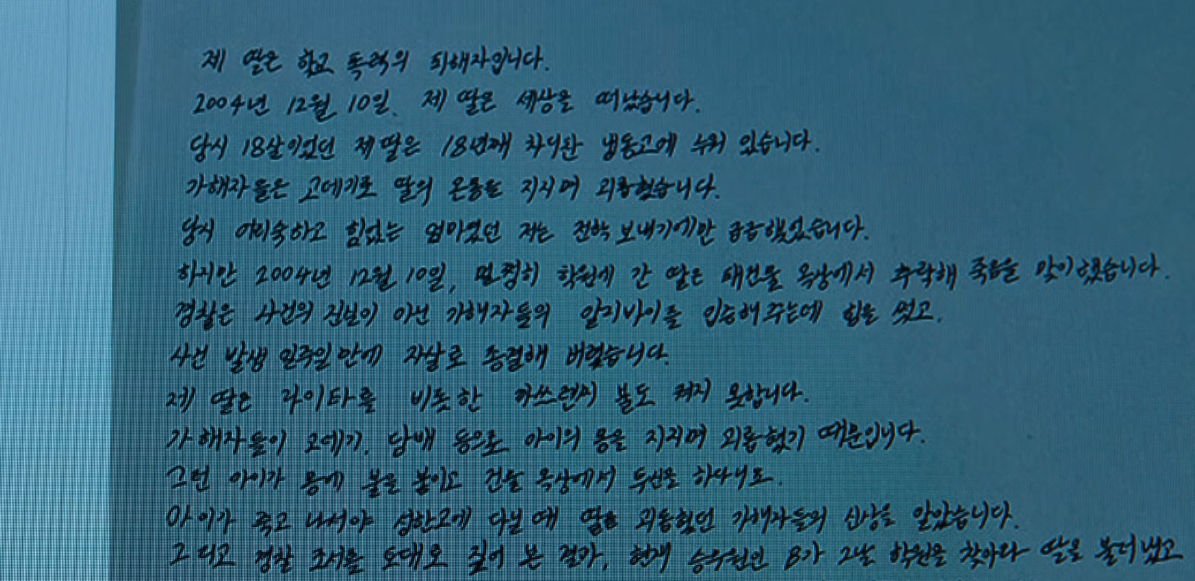 제 딸은 학교 폭력의 피해자입니다.
2004년 12월 10일. 제 딸은 세상을 떠났습니다.
당시 18살이었던 제 딸은 18년째 차디찬 냉동고에 누워 있습니다.
가해자들은 고데기로 딸의 온몸을 지지며 괴롭혔습니다.
당시 어리숙하고 힘없는 엄마였던 저는 전학 보내기에만 급급했었습니다.
하지만 2004년 12월 10일, 멀쩡히 학원에 간 딸은 폐건물 옥상에서 추락해 죽음을 맞이했습니다.
경찰은 사건의 진실이 아닌 가해자들의 알리바이를 입증해주는데 힘을 썼고.
사건 발생 일주일 안에 자살로 종결해 버렸습니다.
제 딸은 라이타를 비롯한 가스렌지 불도 켜지 못합니다.
가해자들이 고데기. 담배 등으로 아이의 몸을 지지며 괴롭혔기 때문입니다.
그런 아이가 몸에 불을 붙이고 건물 옥상에서 투신을 하다니요.
아이가 죽고 나서야 성한고에 다닐 때 딸을 괴롭혔던 가해자들의 신상을 알았습니다.
그리고 경찰 조서를 토대로 짚어 본 결과, 현재 승무원인 B가 그날 학원을 찾아와 딸을 불러 냈고